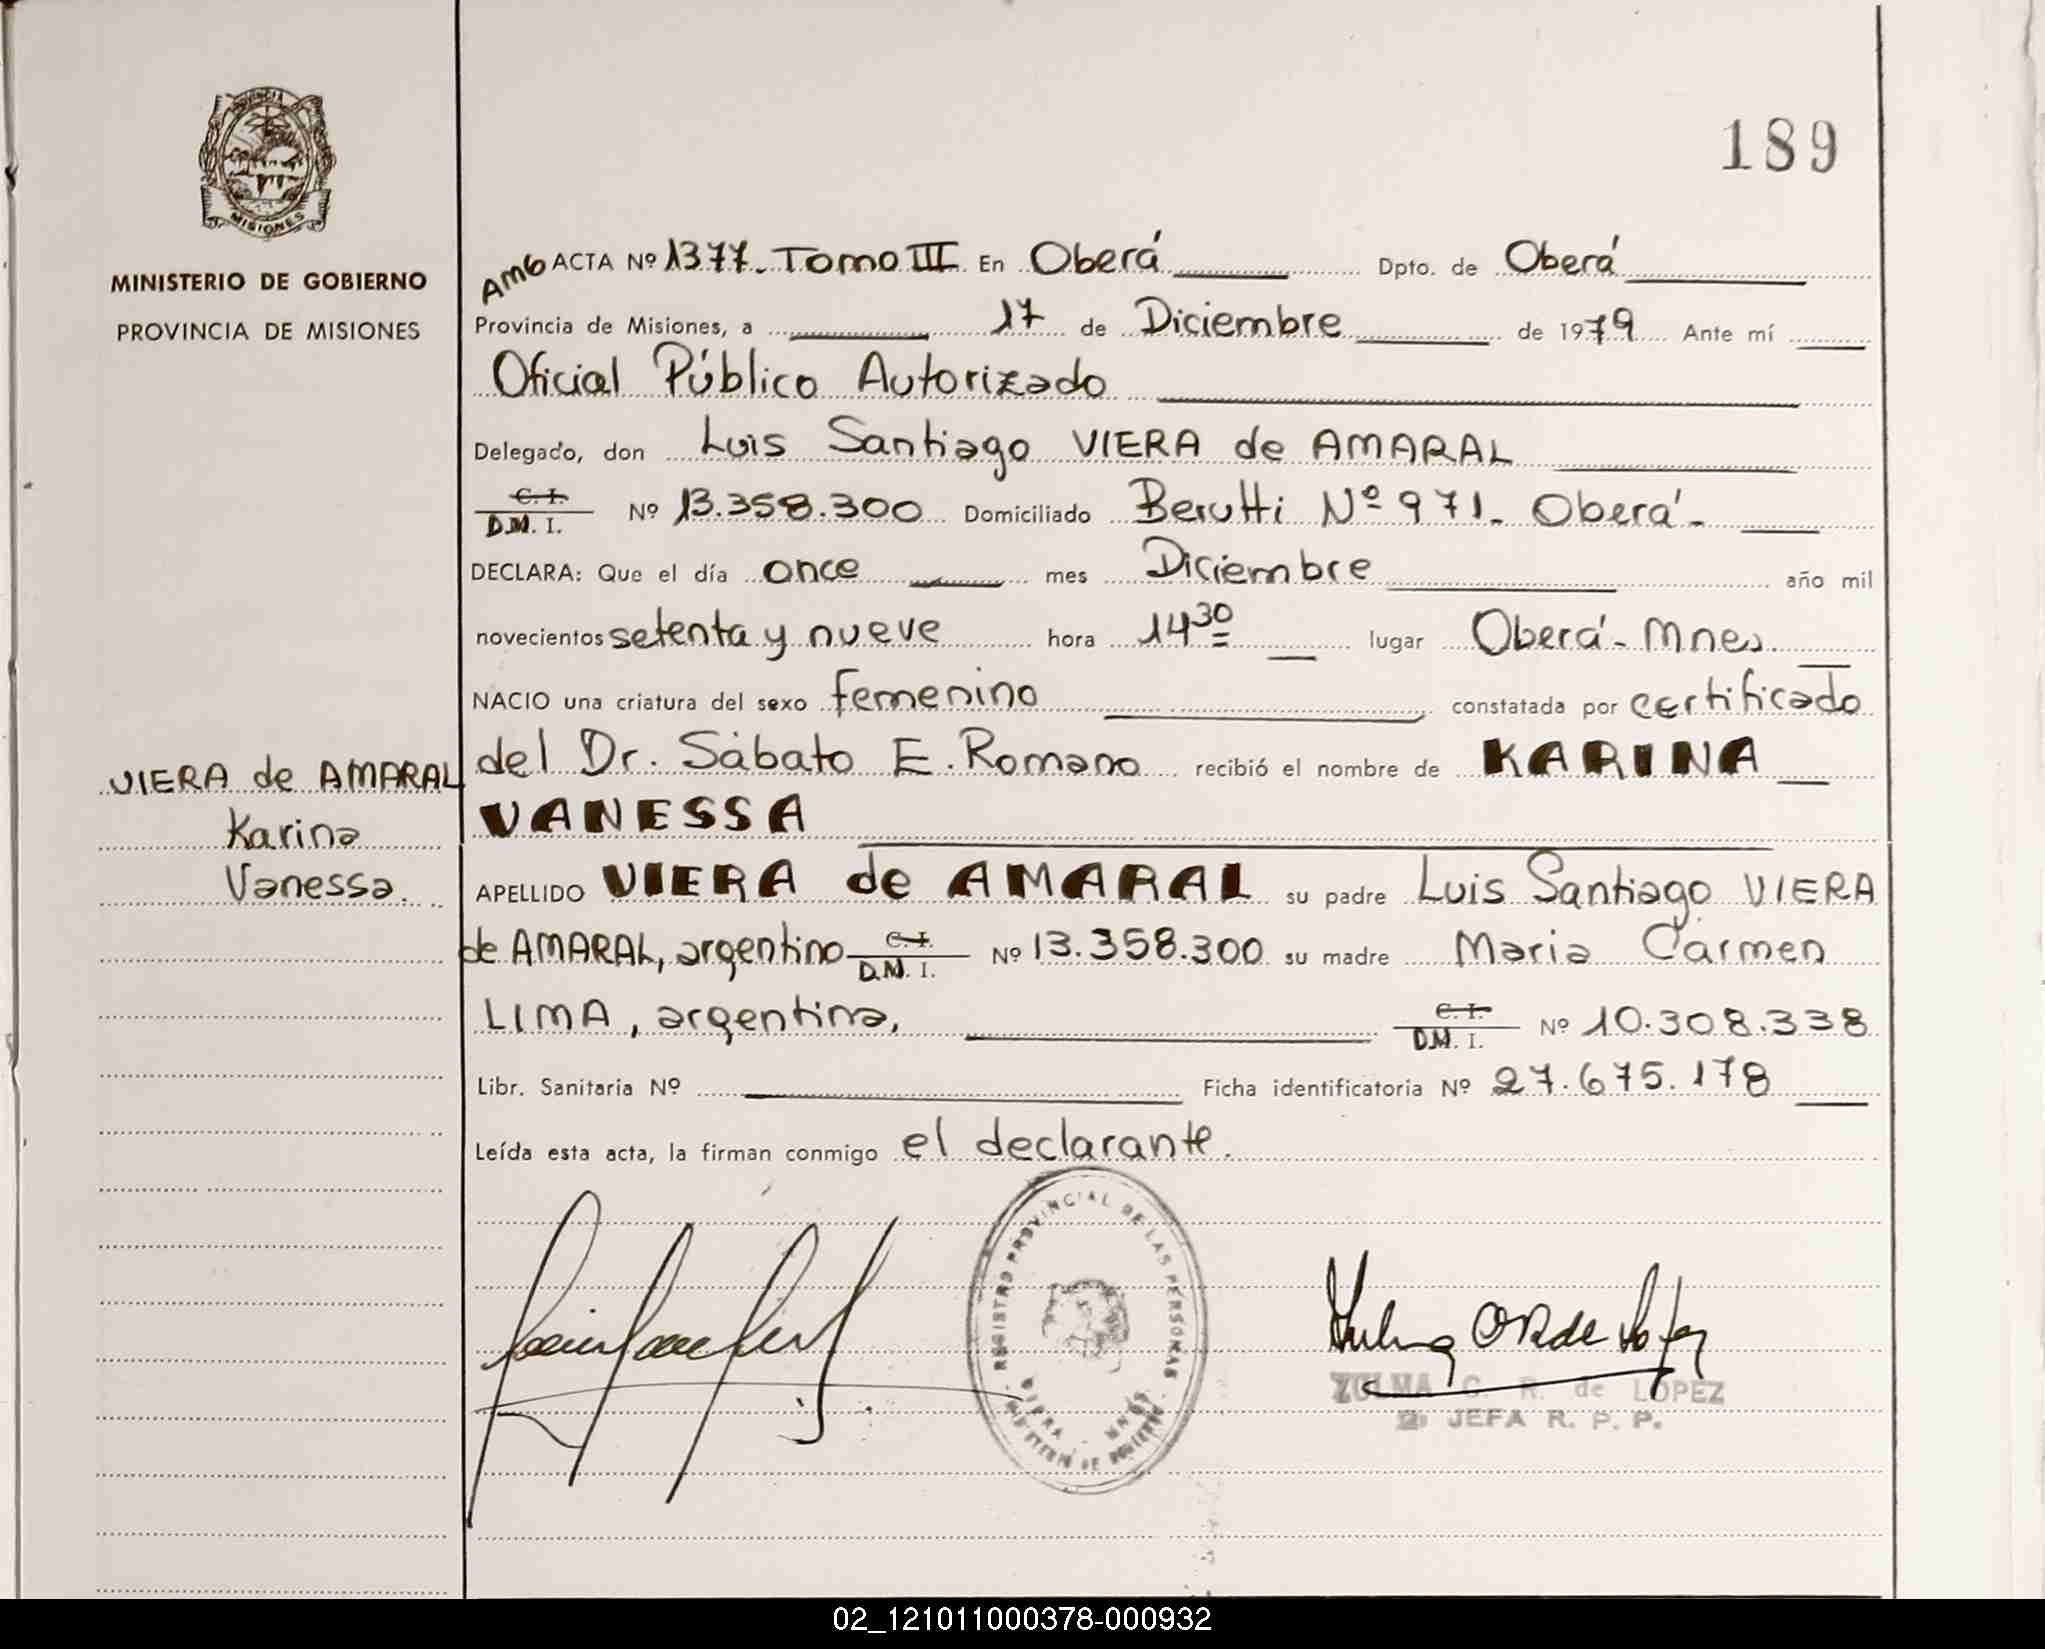 189
PROVINCIA
MISIONES
MINISTERIO DE GOBIERNO
PROVINCIA DE MISIONES
Amb ACTA Nº 1377. Tomo III En Oberá Dpto. de Oberá
Provincia de Misiones, a 17 de Diciembre de 1979 Ante mí
Oficial Público Autorizado
Delegado, don Luis Santiago VIERA de AMARAL
C. I.
D.M. I. Nº 13.358.300 Domiciliado Berutti Nº 971. Oberá-
DECLARA: Que el día once mes Diciembre año mil
novecientos setenta y nueve hora 14 30 lugar Oberá- Mnes.
NACIO una criatura del sexo femenino constatada por certificado
del Dr. Sábato E. Romano recibió el nombre de KARINA
VANESSA
VIERA de AMARAL
Karina
Vanessa.
APELLIDO VIERA de AMARAL su padre Luis Santiago VIERA
de AMARAL, argentino C. I. D.M. I. Nº 13.358.300 su madre Maria Carmen
LIMA, argentina, C. I. D.M. I. Nº 10.308.338
Libr. Sanitaria Nº Ficha identificatoria Nº 27.675.178
Leída esta acta, la firman conmigo el declarante.
REGISTRO PROVINCIAL DE LAS PERSONAS
MINISTERIO DE GOBIERNO
ZULMA C. R. de LOPEZ
JEFA R. P. P.
02_121011000378-000932